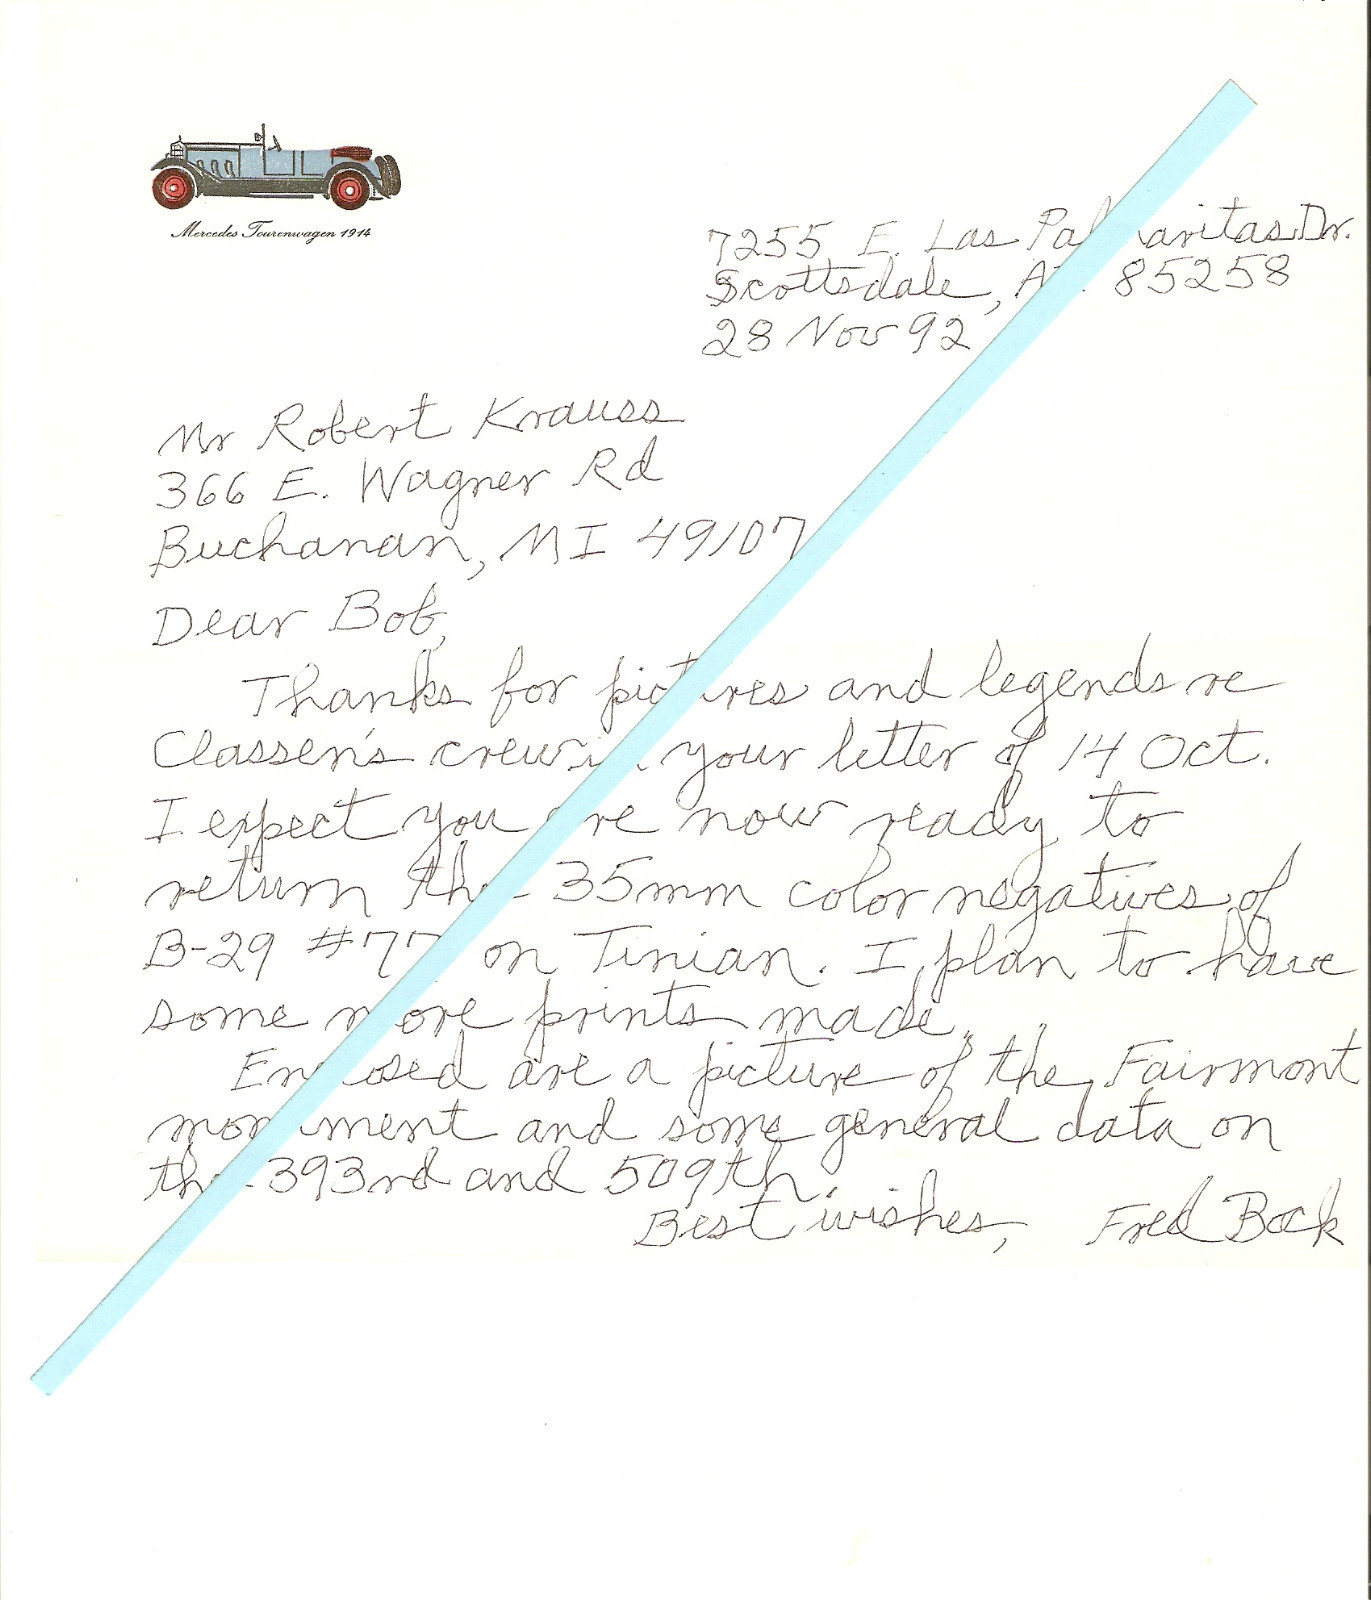 Mercedes Tourenwagen 1914
7255 E. Las Palmaritas Dr.
Scottsdale, AZ 85258
28 Nov 92
Mr Robert Krauss
366 E. Wagner Rd
Buchanan, MI 49107
Dear Bob,
Thanks for pictures and legends re
Classen's crew in your letter of 14 Oct.
I expect you are now ready to
return the 35mm color negatives of
B-29 #77 on Tinian. I plan to have
some more prints made.
Enclosed are a picture of the Fairmont
monument and some general data on
the 393rd and 509th.
Best wishes, Fred Bock